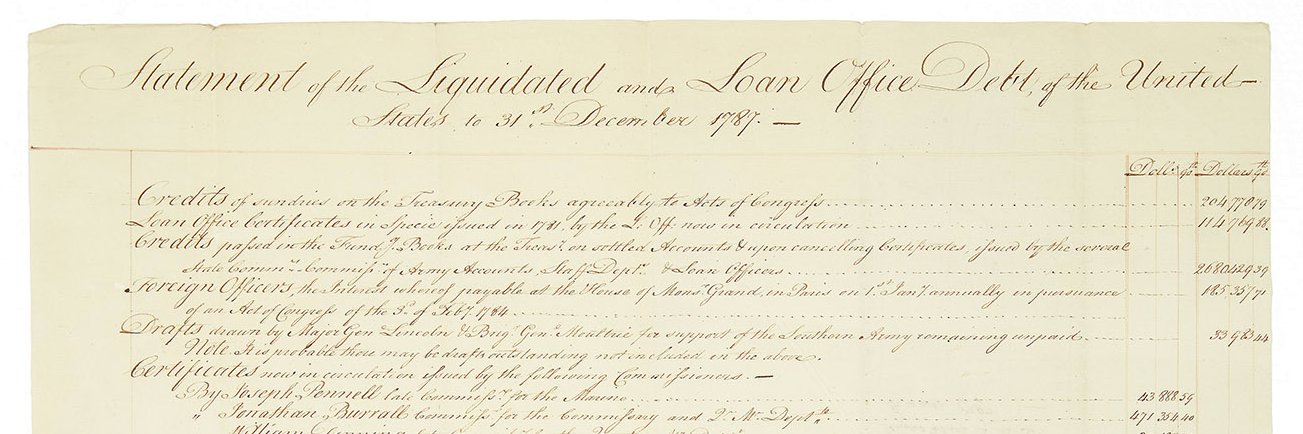 Statement of the Liquidated and Loan Office Debt, of the United
States to 31st December 1787. —
Dolls. 90th Dollars 90th
Credits of sundries on the Treasury Books agreeably to Acts of Congress 204770 79
Loan Office Certificates in Specie issued in 1781, by the L: Off: now in circulation 114769 88
Credits passed in the Fund.g Books at the Treasy. on settled Accounts & upon cancelling Certificates, issued by the several
State Commrs. Commissrs. of Army Accounts, Staff Deptt. & Loan Officers 2680429 39
Foreign Officers, the Interest whereof payable at the House of Monsr. Grand, in Paris on 1st. Jany. annually in pursuance 185357 71
of an Act of Congress of the 3d. of Feby. 1784
Drafts drawn by Major Gen Lincoln & Brigr. Genl. Moultrie for support of the Southern Army remaining unpaid 33983 44
Note. It is probable there may be drafts outstanding not included in the above.
Certificates now in circulation issued by the following Commissioners. —
By Joseph Pennell late Commissr. for the Marine 43888 59
" Jonathan Burrall Commissr. for the Commissary and Qr. Mr. Deptts. 471354 40
William